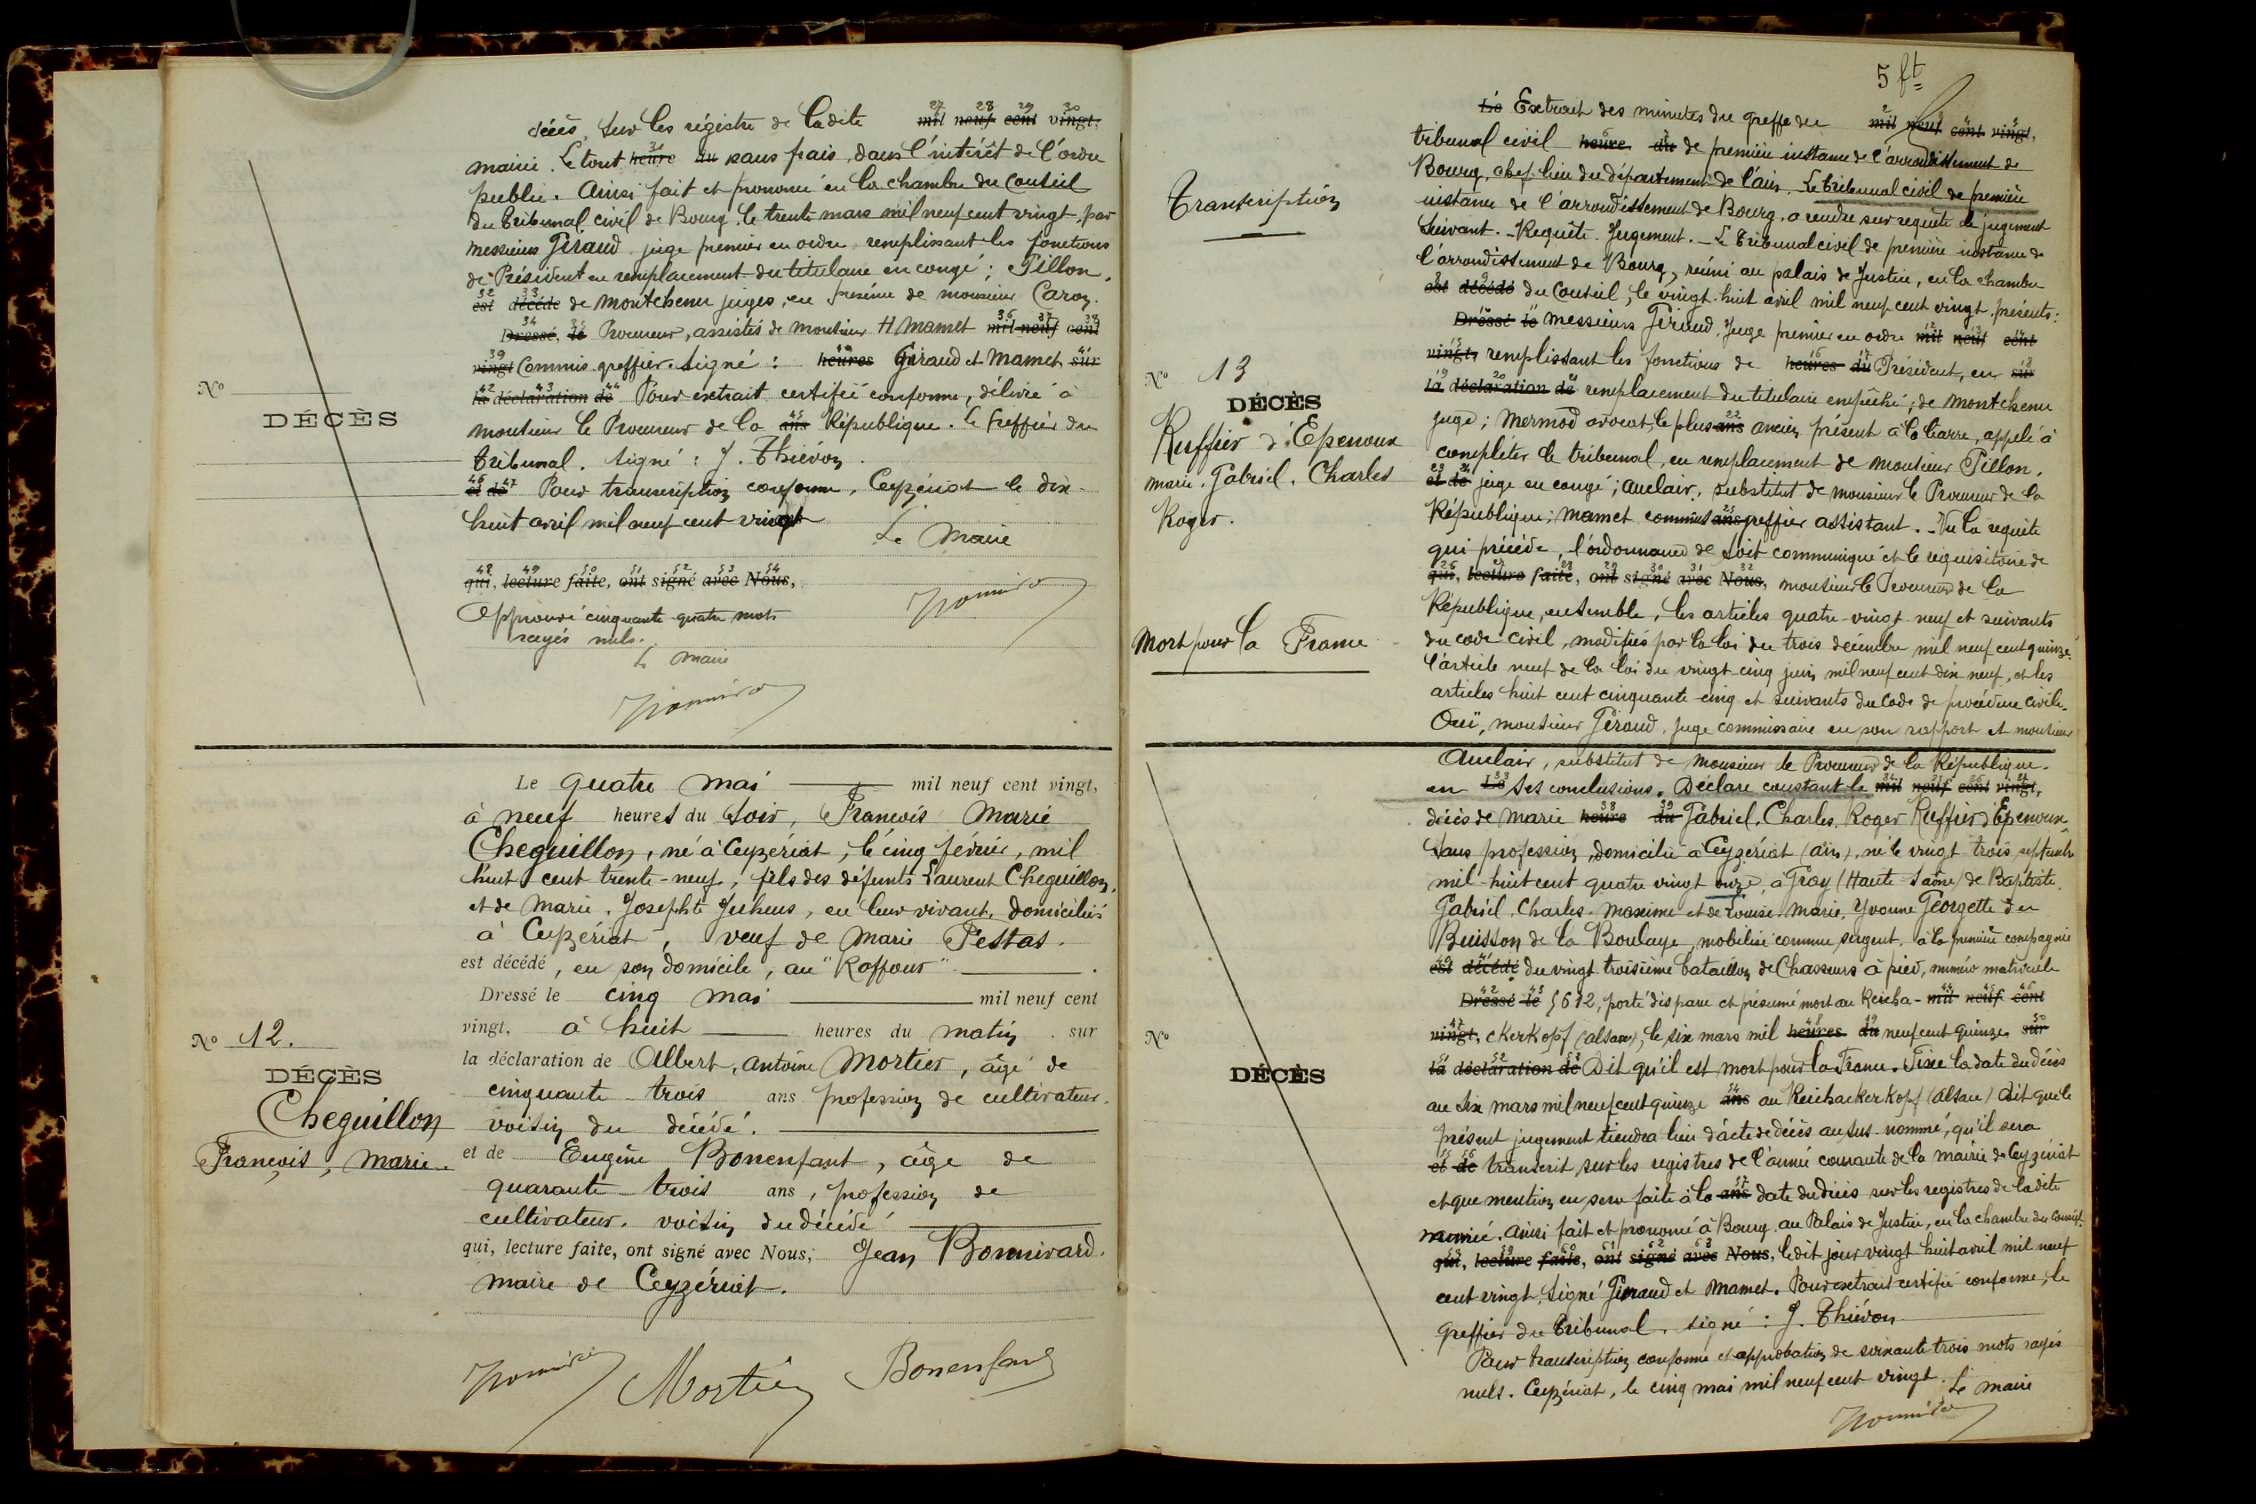 décès, sur les régistre de ladite mil neuf cent vingt,
mairie. Le tout heure du sans frais, dans l'intérêt de l'ordre
public. Ainsi fait et prononcé en la chambre du Conseil
du tribunal civil de Bourg, le trente mars mil neuf cent vingt, par
messieurs Géraud juge premier en ordre remplissant les fonctions
de Président en remplacement du titulaire en congé ; Pillon,
est décédé de Montchenu juges, en présence de monsieur Caron.
Dressé, le Procureur, assistés de monsieur H. Mamet mil neuf cent
vingt Commis-greffier. Signé : heures Géraud et Mamet sur
la déclaration de Pour extrait certifié conforme, délivré à
monsieur le Procureur de la ans République. Le Greffier du
tribunal. Signé : J. Thiévon
et de Pour transcription conforme, Ceyzériat le dix-
huit avril mil neuf cent vingt
Le Maire
qui, lecture faite, ont signé avec Nous,
Approuvé cinquante quatre mots
rayés nuls.
Le Maire
No
DÉCÈS
Le quatre mai mil neuf cent vingt,
à neuf heures du soir, François Marie
Cheguillon, né à Ceyzériat, le cinq février, mil
huit cent trente-neuf, fils des défunts Laurent Cheguillon,
et de Marie, Josephte Juhens, en leur vivant, domiciliés
à Ceyzériat, veuf de Marie Pestas.
est décédé, en son domicile, au "Raffour".
Dressé le cinq mai mil neuf cent
vingt, à huit heures du matin sur
la déclaration de Albert, Antoine Mortier, âgé de
cinquante-trois ans profession de cultivateur.
voisin du décédé.
et de Eugène Bonenfant, âge de
quarante-trois ans, profession de
cultivateur. voisin du décédé
qui, lecture faite, ont signé avec Nous, Jean Bonnivard.
maire de Ceyzériat.
Mortier Bonenfant
No 12.
DÉCÈS
Cheguillon
François, Marie.
5 ft
Transcription
No 13
DÉCÈS
Ruffier d'Epenoux
Marie. Gabriel. Charles
Roger.
Mort pour la France
Le Extrait des minutes du greffe du mil neuf cent vingt,
tribunal civil heure du de première instance de l'arrondissement de
Bourg, chef-lieu du département de l'Ain. Le tribunal civil de première
instance de l'arrondissement de Bourg, a rendu sur requête le jugement
suivant. - Requête. Jugement. - Le tribunal civil de première instance de
l'arrondissement de Bourg, réuni au palais de Justice, en la chambre
est décédé du Conseil, le vingt-huit avril mil neuf cent vingt, présents :
Dressé le messieurs Géraud, Juge premier en ordre mil neuf cent
vingt, remplissant les fonctions de heures du Président, en sur
la déclaration de remplacement du titulaire empêché ; de Montchenu
juge ; Mermod avocat, le plus ans ancien présent à la barre, appelé à
compléter le tribunal, en remplacement de monsieur Pillon,
et de juge en congé ; Auclair, substitut de monsieur le Procureur de la
République ; Mamet commis ans greffier assistant. - Vu la requête
qui précède, l'ordonnance de soit communiqué et le réquisitoire de
qui, lecture faite, ont signé avec Nous, monsieur le Procureur de la
République, ensemble, les articles quatre-vingt-neuf et suivants
du code civil, modifiés par la loi du trois décembre mil neuf cent quinze,
l'article neuf de la loi du vingt cinq juin mil neuf cent dix neuf, et les
articles huit cent cinquante cinq et suivants du Code de procédure civile.
Ouï, monsieur Géraud, Juge commissaire en son rapport et monsieur
Auclair, substitut de monsieur le Procureur de la République
en Le ses conclusions. Déclare constant le mil neuf cent vingt,
décès de Marie heure du Gabriel, Charles, Roger Ruffier d'Epenoux
sans profession, domicilié à Ceyzériat (Ain), né le vingt-trois septembre
mil-huit cent quatre vingt onze, à Gray (Haute-Saône) de Baptiste
Gabriel, Charles, Maxime et de Louise, Marie, Yvonne Georgette du
Buisson de la Boulaye, mobilisé comme sergent, à la première compagnie
est décédé du vingt-troisième bataillon de Chasseurs à pied, numéro matricule
Dressé le 5612, porté disparu et présumé mort au Reicha- mil neuf cent
vingt, ckerkopf (Alsace), le six mars mil heures du neuf cent quinze sur
la déclaration de Dit qu'il est mort pour la France. Fixe la date du décès
au six mars mil neuf cent quinze ans au Reichackerkopf (Alsace) Dit que le
présent jugement tiendra lieu d'acte de décès au sus-nommé, qu'il sera
et de transcrit sur les registres de l'année courante de la mairie de Ceyzériat
et que mention en sera faite à la ans date du décès sur les registres de ladite
mairie. Ainsi fait et prononcé à Bourg. au Palais de Justice, en la chambre du Conseil.
qui, lecture faite, ont signé avec Nous, ledit jour vingt huit avril mil neuf
cent vingt, Signé Géraud et Mamet. Pour extrait certifié conforme, le
greffier du tribunal, signé : J. Thiévon
Pour transcription conforme et approbation de soixante-trois mots rayés
nuls. Ceyzériat, le cinq mai mil neuf cent vingt.
Le Maire
No
DÉCÈS